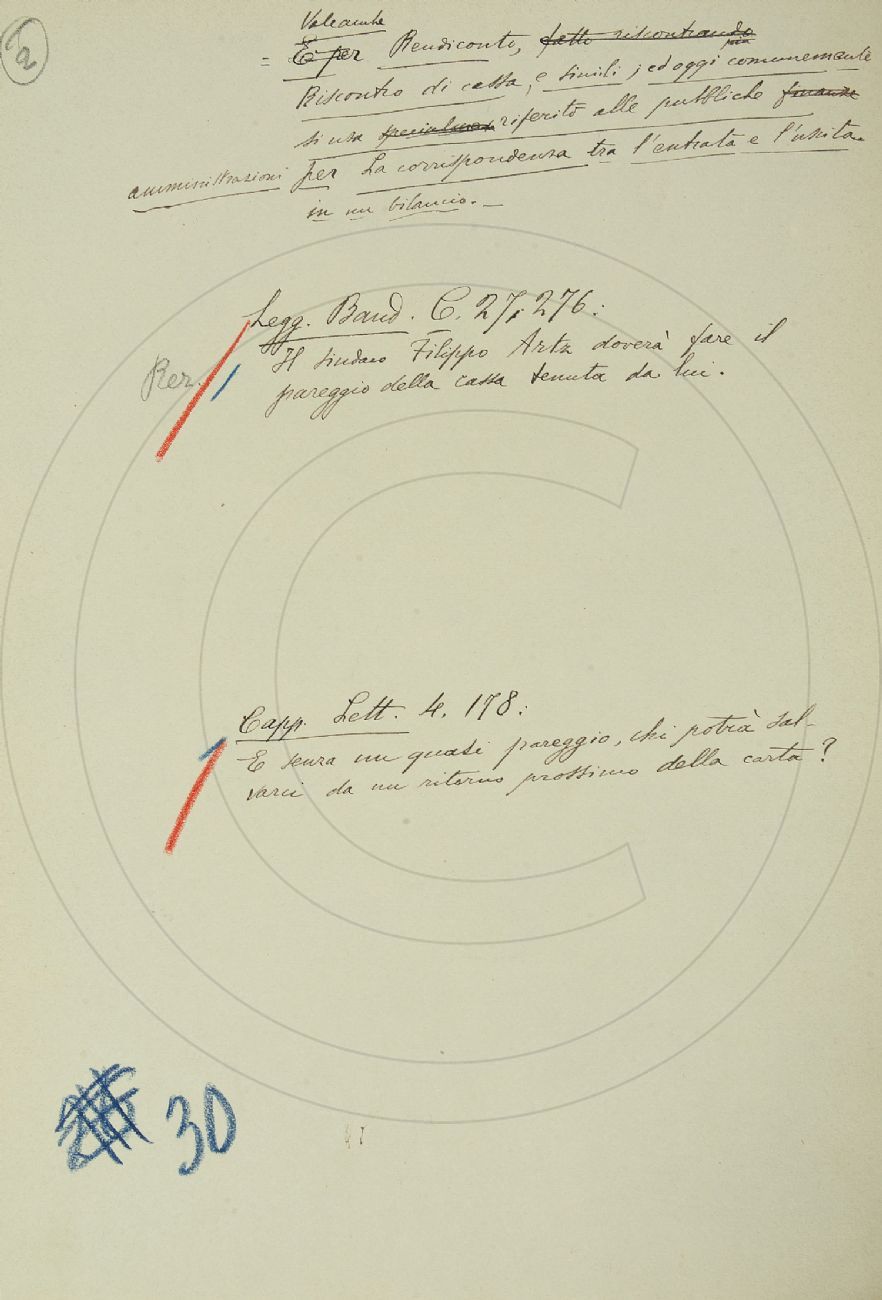 2
Vale anche
= E per Rendiconto, fatto riscontrando
Riscontro di cassa, e simili; ed oggi più comunemente
si usa specialmen riferito alle pubbliche finanze
amministrazioni per La corrispondenza tra l'entrata e l'uscita
in un bilancio. —
Legg. Band. C. 27, 276:
Il sindaco Filippo Artz doverà fare il
pareggio della cassa tenuta da lui.
Rez.
Capp. Lett. 4. 178:
E senza un quasi pareggio, chi potrà sal-
varci da un ritorno prossimo della carta?
30